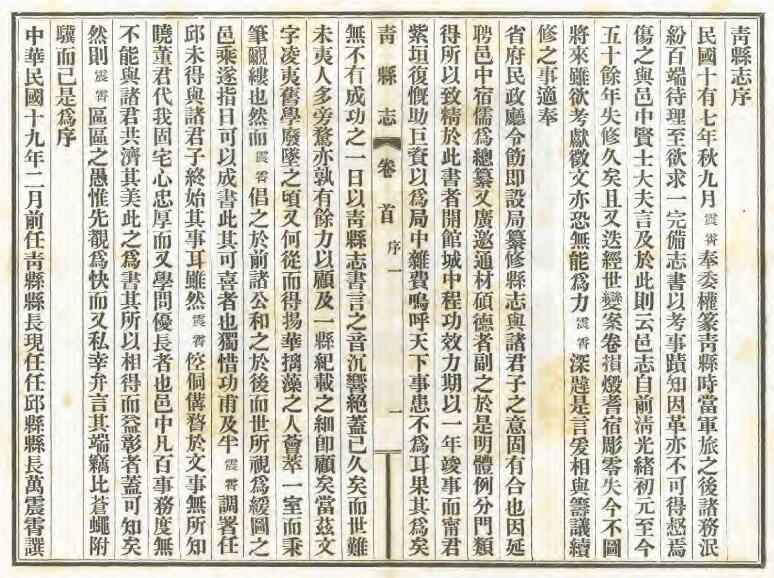 靑縣志序
民國十有七年秋九月震霄奉委權篆靑縣時當軍旅之後諸務泯
紛百端待理至欲求一完備志書以考事蹟知因革亦不可得惄焉
傷之與邑中賢士大夫言及於此則云邑志自前淸光緒初元至今
五十餘年失修久矣且又迭經世變案卷損燬耆宿彫零失今不圖
將來雖欲考獻徵文亦恐無能爲力震霄深韙是言爰相與籌議續
修之事適奉
省府民政廳令飭即設局纂修縣志與諸君子之意固有合也因延
聘邑中宿儒爲總纂又廣邀通材碩德者副之於是明體例分門類
得所以致精於此書者開館城中程功效力期以一年竣事而甯君
紫垣復慨助巨資以爲局中雜費嗚呼天下事患不爲耳果其爲矣
靑縣志 卷首 序一 一
無不有成功之一日以靑縣志書言之音沉響絕蓋已久矣而世難
未夷人多旁騖亦孰有餘力以顧及一縣紀載之細卽顧矣當茲文
字凌夷舊學廢墜之頃又何從而得揚華摛藻之人薈萃一室而秉
筆覼縷也然而震霄倡之於前諸公和之於後而世所視爲緩圖之
邑乘遂指日可以成書此其可喜者也獨惜功甫及半震霄調署任
邱未得與諸君子終始其事耳雖然震霄倥侗傋瞀於文事無所知
曉董君代我固宅心忠厚而又學問優長者也邑中凡百事務度無
不能與諸君共濟其美此之爲書其所以相得而益彰者蓋可知矣
然則震霄區區之愚惟先覩爲快而又私幸弁言其端竊比蒼蠅附
驥而已是爲序
中華民國十九年二月前任靑縣縣長現任任邱縣縣長萬震霄譔